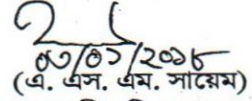 ০৩/০১/২০১৮
(এ. এস. এম. সায়েম)